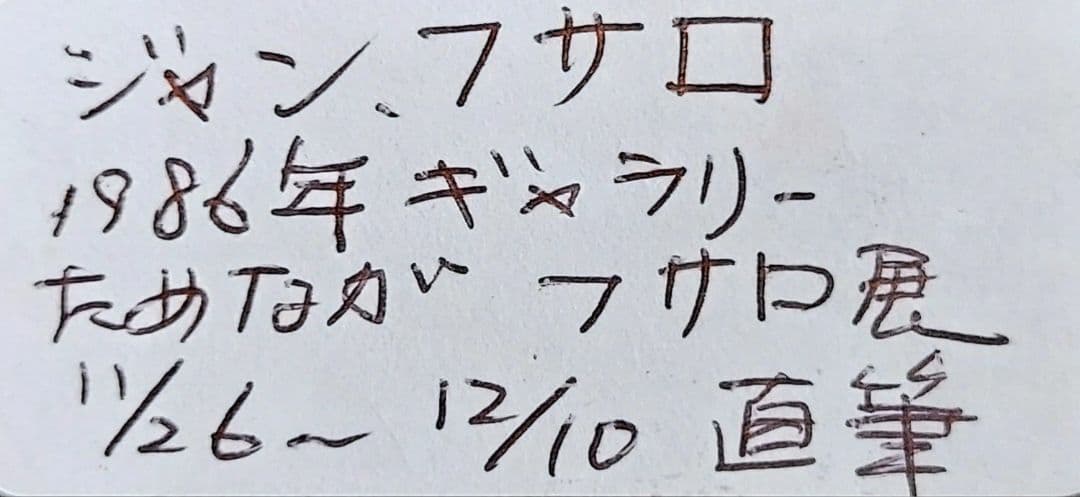 ジャン、フサロ
1986年 ギャラリー
ためなが フサロ展
11/26〜 12/10 直筆